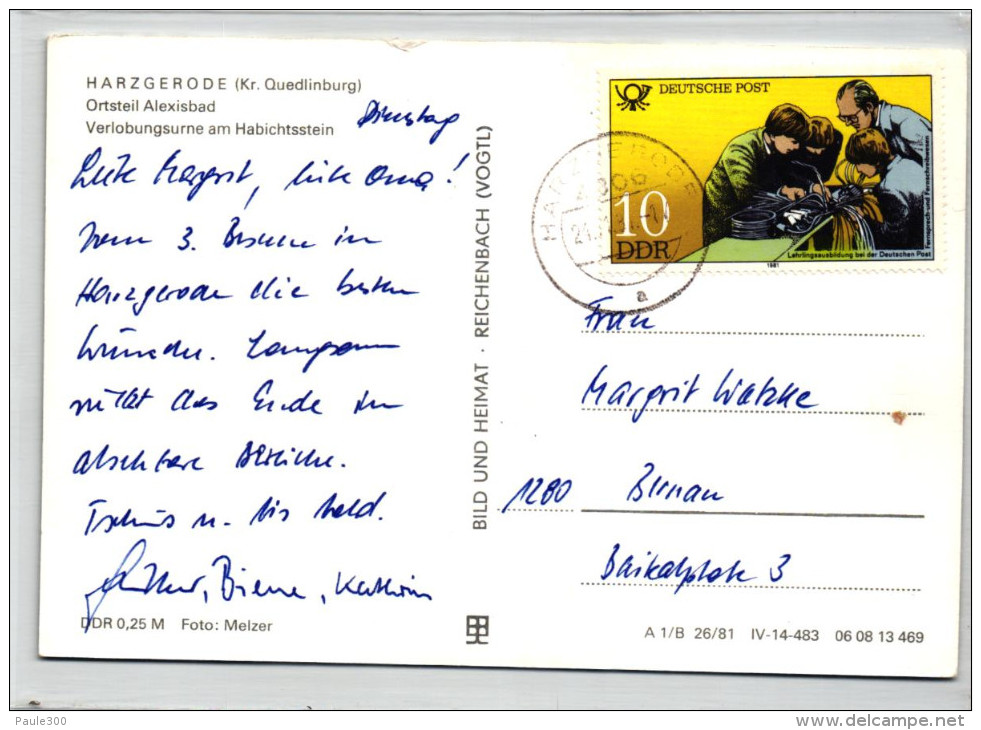 HARZGERODE (Kr. Quedlinburg)
Ortsteil Alexisbad
Verlobungsurne am Habichtsstein
Dienstag
Liebe Margrit, liebe Oma!
Vom 3. Besuch in
Harzgerode die besten
Wünsche. Langsam
rückt das Ende in
absehbare Bereiche.
Tschüs u. bis bald.
Biene, Kathrin
DDR 0,25 M Foto: Melzer
BILD UND HEIMAT · REICHENBACH (VOGTL)
DEUTSCHE POST
10
DDR
Lehrlingsausbildung bei der Deutschen Post
Fernsprech- und Fernschreibwesen
1981
HARZGERODE
a
Frau
Margrit Watzke
1280 Bernau
Baikalplatz 3
A 1/B 26/81 IV-14-483 06 08 13 469
Paule300
www.delcampe.net